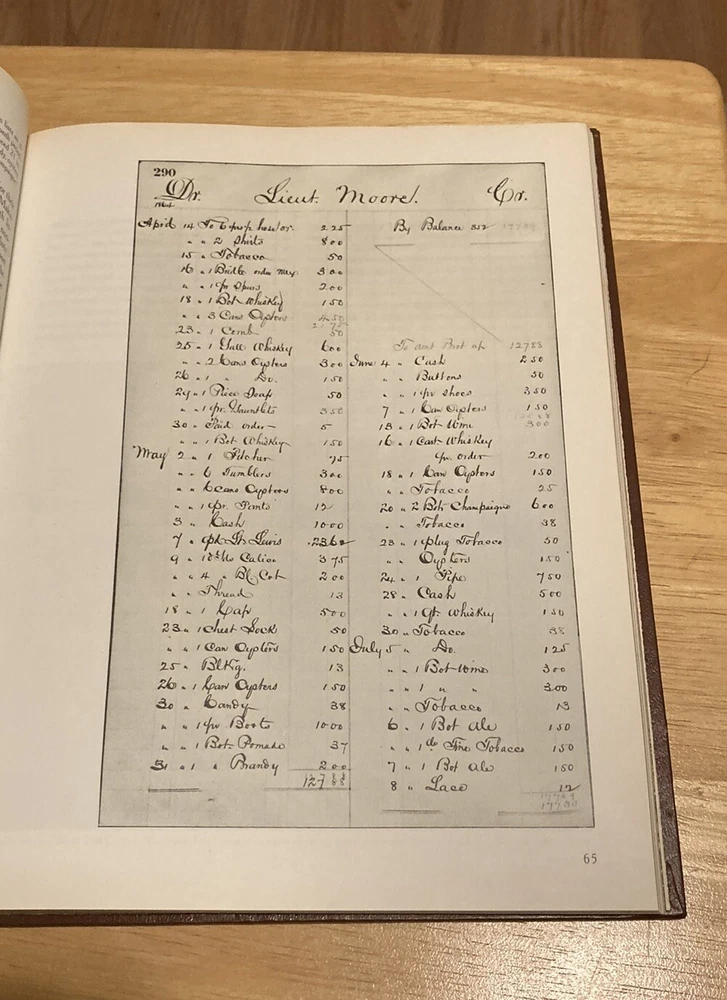 290
Dr. Lieut. Moore. Cr.
1864
April 14 To 6 hose 2 25
" " 2 Shirts 8 00
15 " Tobacco 50
16 " 1 Bridle order May 3 00
" " 1 pr Spurs 2 00
18 " 1 Bot Whiskey 1 50
" " 3 Cans Oysters 4 50
23 " 1 Comb 50
25 " 1 Gall Whiskey 6 00
" " 2 Cans Oysters 3 00
26 " 1 " Do. 1 50
29 " 1 Piece Soap 50
" " 1 pr. Gauntlets 3 50
30 " Paid order 5
" " 1 Bot Whiskey 1 50
May 2 " 1 Pitcher 75
" " 6 Tumblers 3 00
" " 6 cans Oysters 8 00
" " 1 pr. Pants 12
3 " Cash 10 00
7 " St. Lewis 23 62
9 " Calico 3 75
" " 4 " Bl Cot 2 00
" " Thread 13
18 " 1 Cap 5 00
23 " 1 Chest Lock 50
" " 1 Can Oysters 1 50
25 " Blkg. 13
26 " 1 Can Oysters 1 50
30 " Candy 38
" " 1 pr Boots 10 00
" " 1 Bot Pomade 37
31 " 1 " Brandy 2 00
127 88
By Balance 352
To amt Brot up 127 88
June 4 " Cash 2 50
" " Buttons 50
" " 1 pr Shoes 3 50
7 " 1 Can Oysters 1 50
13 " 1 Bot Wine 3 00
16 " 1 Whiskey
pr. order 2 00
18 " 1 Can Oysters 1 50
" " Tobacco 25
20 " 2 Bot Champaigne 6 00
" " Tobacco 38
23 " 1 plug Tobacco 50
" " Oysters 1 50
24 " 1 Pipe 7 50
28 " Cash 5 00
" " 1 qt. Whiskey 1 50
30 " Tobacco 38
July 5 " Do. 1 25
" " 1 Bot Wine 3 00
" " 1 " " 3 00
" " Tobacco 13
6 " 1 Bot Ale 1 50
" " 1 do Fine Tobacco 1 50
7 " 1 Bot Ale 1 50
8 " Lace 12
65